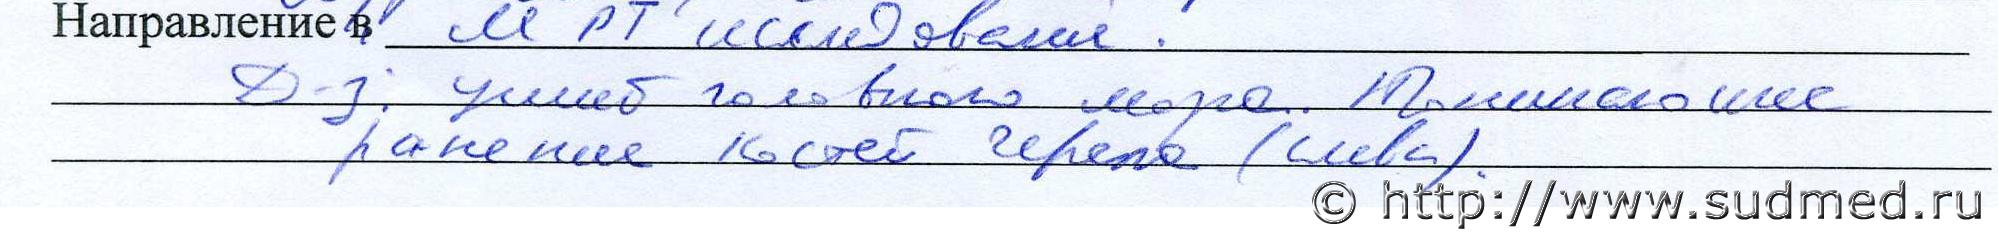 Направление в МРТ исследование.
Д-з: ушиб головного мозга. Проникающее
ранение костей черепа (слева).
© http://www.sudmed.ru